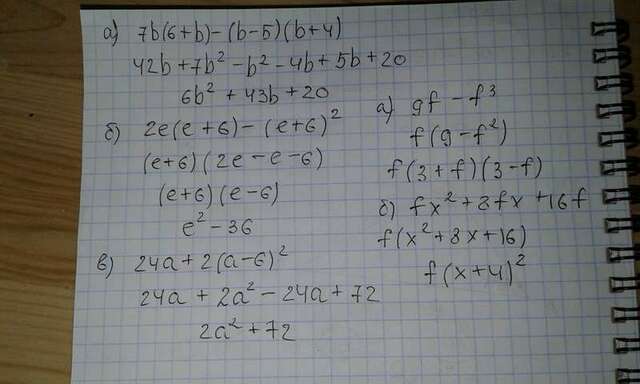 а) 7b(6+b)-(b-5)(b+4)
42b+7b²-b²-4b+5b+20
6b²+43b+20
б) 2e(e+6)-(e+6)²
(e+6)(2e-e-6)
(e+6)(e-6)
e²-36
в) 24a+2(a-6)²
24a+2a²-24a+72
2a²+72
а) 9f-f³
f(9-f²)
f(3+f)(3-f)
б) fx²+8fx+16f
f(x²+8x+16)
f(x+4)²